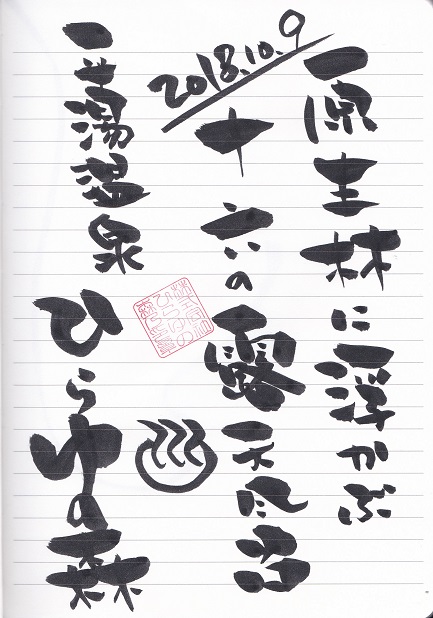 2018.10.9
原生林に浮かぶ
十六の露天風呂
平湯温泉 ひらゆの森